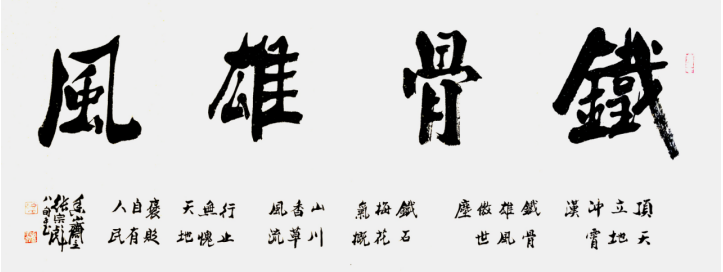 鐵骨雄風
頂天立地冲霄漢
鐵骨雄風傲世塵
鐵石梅花氣概
山川香草風流
行止無愧天地
褒貶自有人民